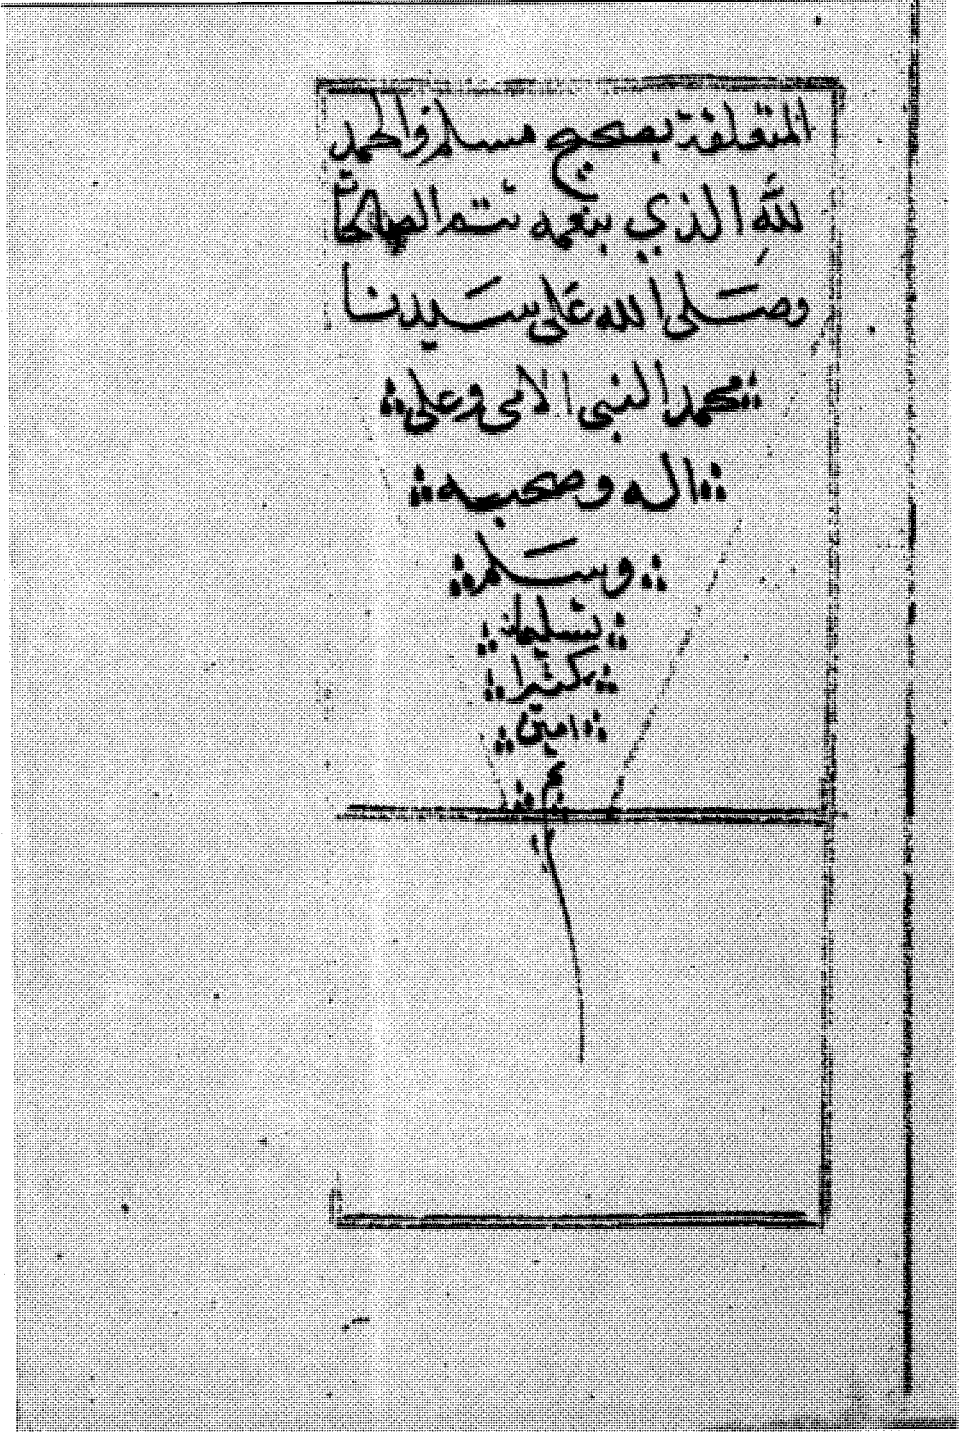 المتعلقة بصحيح مسلم والحمد
لله الذي بنعمه تتم الصالحات
وصلى الله على سيدنا
محمد النبي الامى وعلى
اله وصحبه
وسلم
تسليما
كثيرا
امين
تم